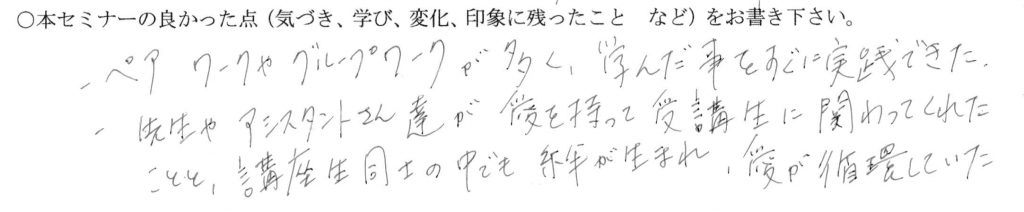 ○本セミナーの良かった点（気づき、学び、変化、印象に残ったこと　など）をお書き下さい。
- ペアワークやグループワークが多く、学んだ事をすぐに実践できた。
- 先生やアシスタントさん達が愛を持って受講生に関わってくれた
ことと、講座生同士の中でも絆が生まれ、愛が循環していた